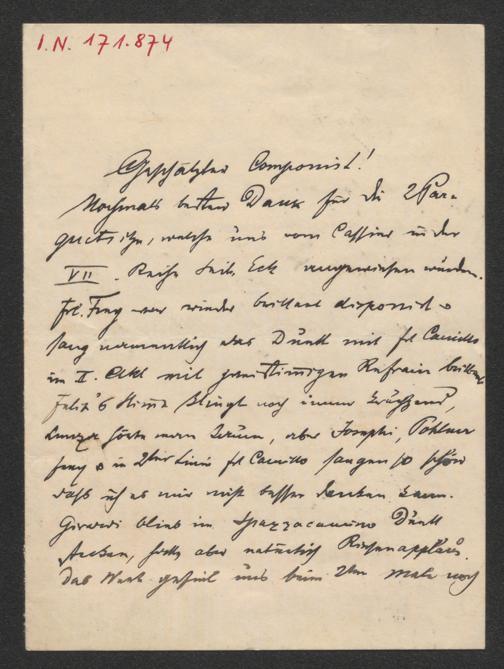 I.N. 171.874
Geschätzter Componist!
Nochmals besten Dank für die 2 Par-
quetsitze, welche uns vom Cassier in der
VII. Reihe Seite Eck angewiesen wurden.
Frl. Frey war wieder brillant disponirt
sang namentlich das Duett mit frl Camillo
im II. Akt mit zweistimmigen Refrain
Felix's Stimme klingt noch immer krächzend,
hörte man kaum, aber Josephi, Pohlner
Frey in 2ter Linie frl Camillo sangen so schön
daß ich es mir nicht besser denken kann.
Girardi blieb im Spazzacamino Duett
stecken, hatte aber natürlich Riesenapplaus.
Das Werk gefiel uns beim 2ten male noch